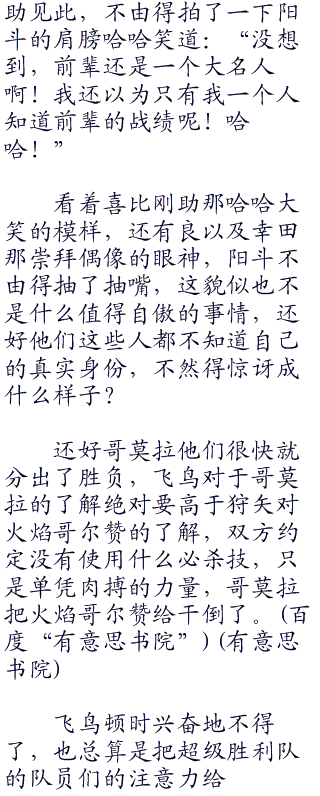 助见此，不由得拍了一下阳
斗的肩膀哈哈笑道：“没想
到，前辈还是一个大名人
啊！我还以为只有我一个人
知道前辈的战绩呢！哈
哈！”
看着喜比刚助那哈哈大
笑的模样，还有良以及幸田
那崇拜偶像的眼神，阳斗不
由得抽了抽嘴，这貌似也不
是什么值得自傲的事情，还
好他们这些人都不知道自己
的真实身份，不然得惊讶成
什么样子？
还好哥莫拉他们很快就
分出了胜负，飞鸟对于哥莫
拉的了解绝对要高于狩矢对
火焰哥尔赞的了解，双方约
定没有使用什么必杀技，只
是单凭肉搏的力量，哥莫拉
把火焰哥尔赞给干倒了。(百
度“有意思书院”)(有意思
书院)
飞鸟顿时兴奋地不得
了，也总算是把超级胜利队
的队员们的注意力给